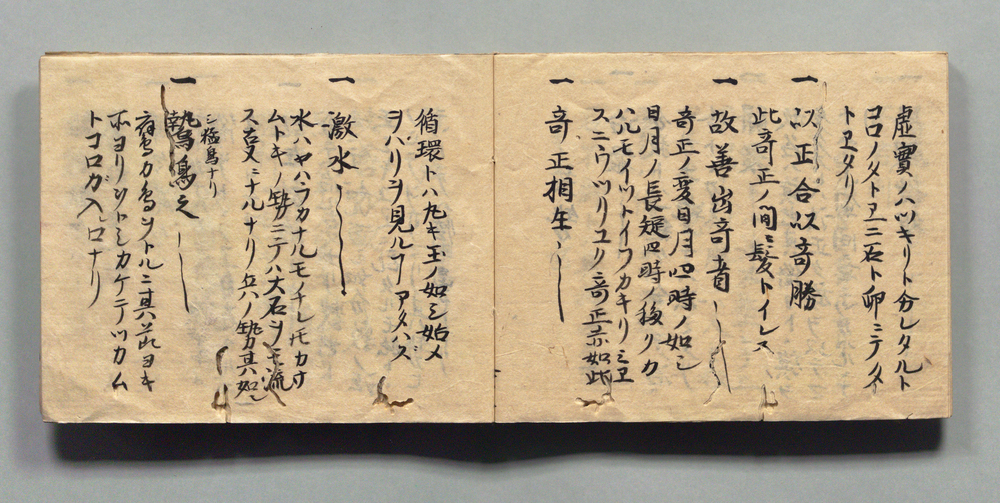 虚實ノハツキリト分レタルト
コロノタトヱニ石ト卵ニテノタイ
トヱタリ
一 以正合以奇勝
此奇正ノ間ニ髪トイレス
一 故善出奇者
奇正ノ変日月四時ノ如シ
日月ノ長短四時ノ移リカ
ハルモイツトイフカキリミヱ
スニウツリユク奇正亦如此
一 奇正相生
循環トハ丸キ玉ノ如シ始メ
ヲハリヲ見ルヿアタハズ
一 激水
水ハヤハラカナルモノナレ𪜈カサ
ムトキノ勢ニテハ大石ヲモ流
ス㕝ニナルナリ兵ハノ勢其如シ
シ猛鳥ナリ
一 鷙鳥之
鳥ヲトルニ其 ヨキ
ホヨリシツトシカケテツカム
トコロガ入口ナリ